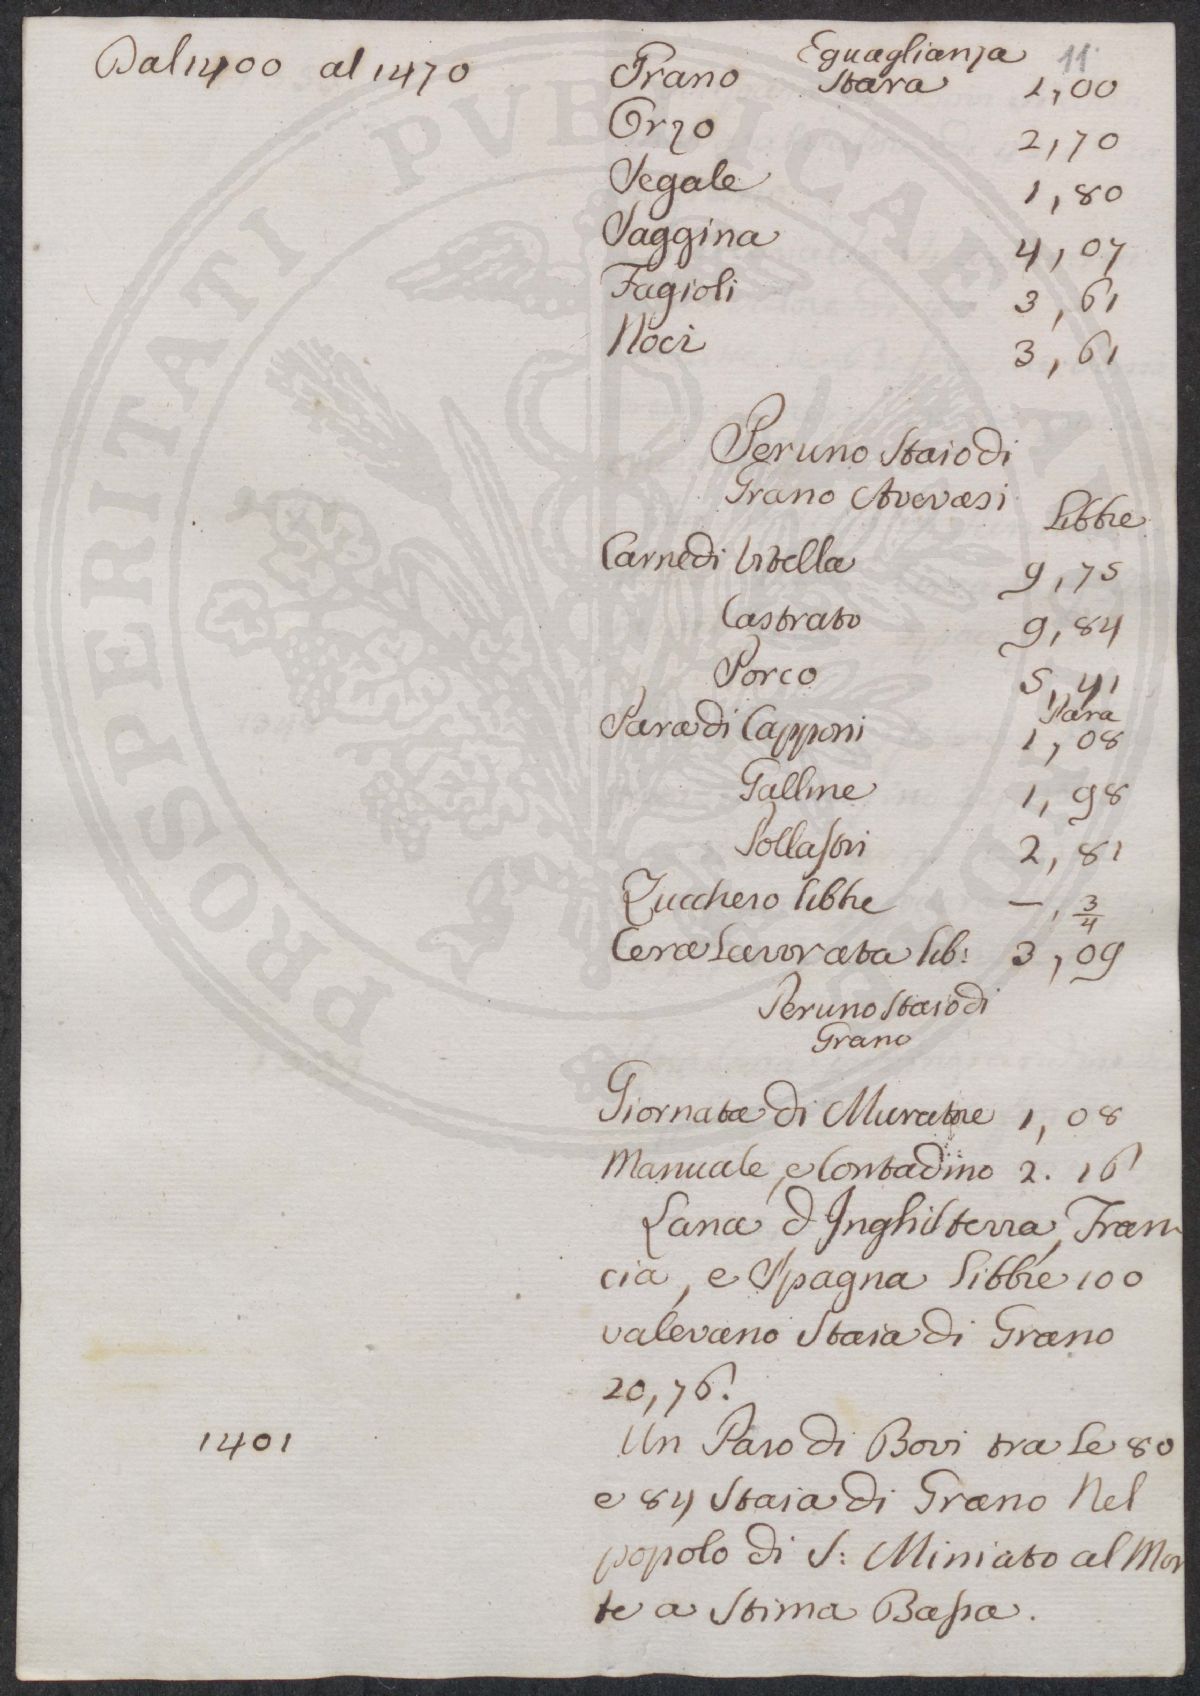 Dal 1400 al 1470
Eguaglianza 11
Grano Stara 1,00
Orzo 2,70
Segale 1,80
Saggina 4,07
Fagioli 3,61
Noci 3,61
Per uno Staio di
Grano Avevasi
Libbre
Carne di Vitella 9,75
Castrato 9,84
Porco 5,41
Para
Para di Capponi 1,08
Galline 1,98
Pollastri 2,81
Zucchero libbre —, 3/4
Cera Lavorata lib: 3,09
Per uno Staio di
Grano
Giornata di Muratore 1,08
Manuale, e Contadino 2.16
Lana d'Inghilterra, Fran
cia, e Spagna Libbre 100
valevano Staia di Grano
20,76.
1401
Un Paro di Bovi tra Le 80
e 84 Staia di Grano Nel
popolo di S: Miniato al Mon
te a Stima Bassa.
PROSPERITATI PVBLICAE